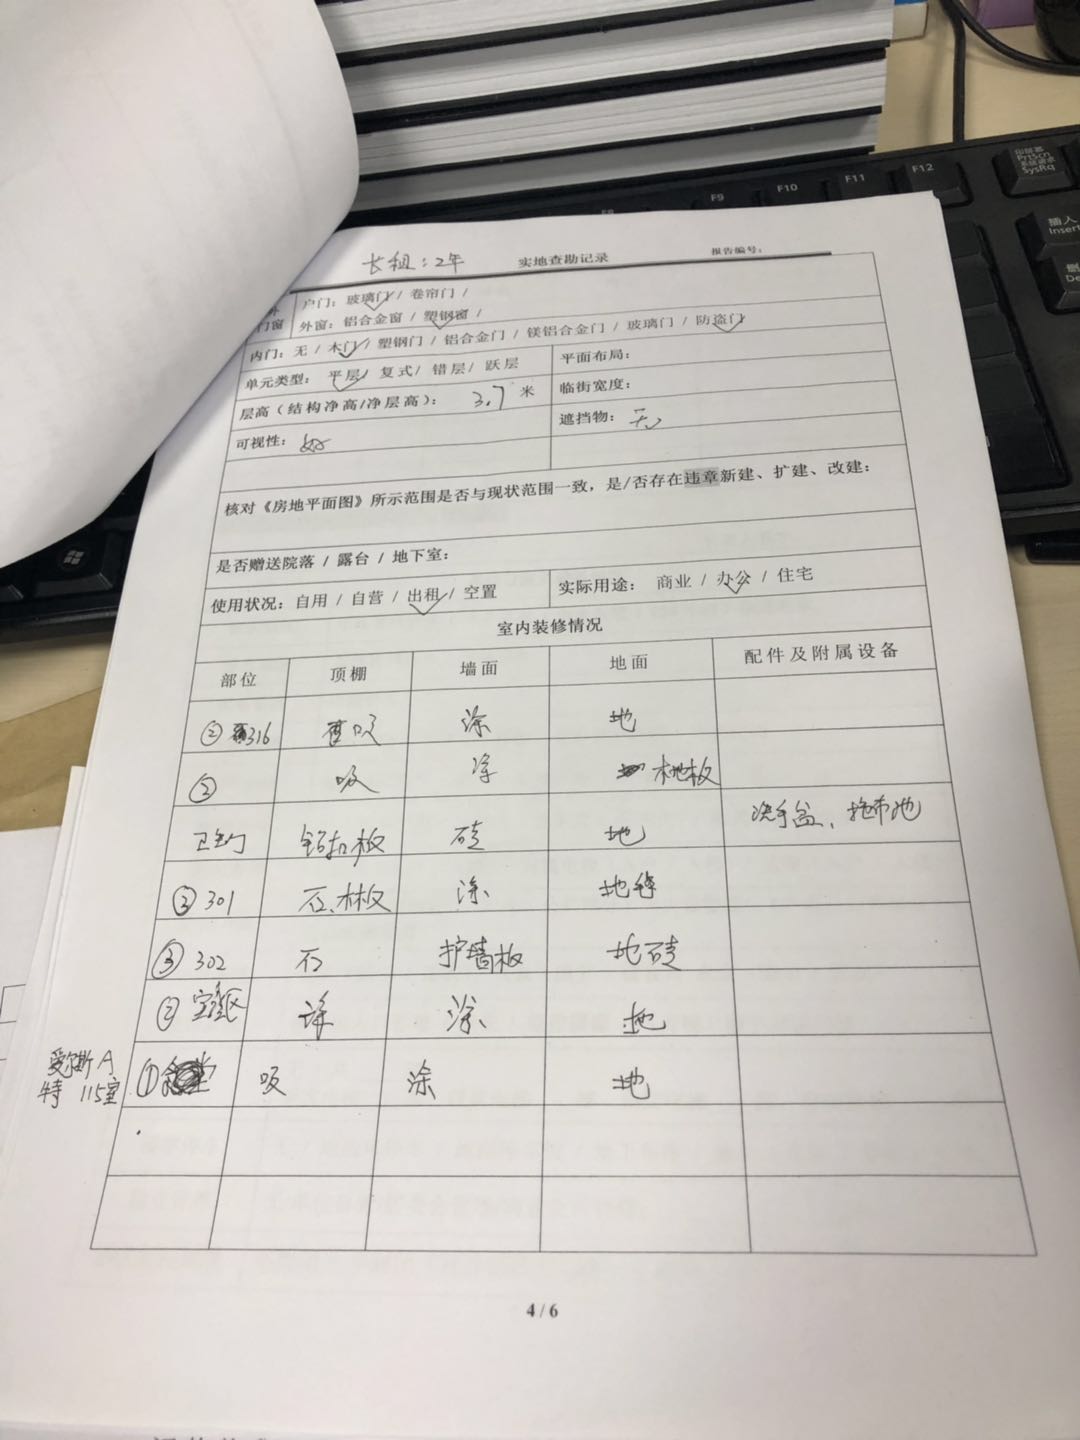 长租：2年 实地查勘记录 报告编号：
户门：玻璃门 / 卷帘门 /
门窗 外窗：铝合金窗 / 塑钢窗 /
内门：无 / 木门 / 塑钢门 / 铝合金门 / 镁铝合金门 / 玻璃门 / 防盗门
单元类型：平层 / 复式 / 错层 / 跃层 平面布局：
层高（结构净高/净层高）： 3.7 米 临街宽度：
可视性：好 遮挡物：无
核对《房地平面图》所示范围是否与现状范围一致，是/否存在违章新建、扩建、改建：
是否赠送院落 / 露台 / 地下室：
使用状况：自用 / 自营 / 出租 / 空置 实际用途： 商业 / 办公 / 住宅
室内装修情况
部位 顶棚 墙面 地面 配件及附属设备
② 316 吸 涂 地
② 吸 涂 木地板
卫生间 铝扣板 砖 地 洗手盆、拖布池
③ 301 石、木板 涂 地毯
③ 302 石 护墙板 地砖
② 涂 涂 地
爱尔斯 A ① 吸 涂 地
特 115室
4 / 6
F9
F10
F11
F12
印屏幕
PrtScn
SysRq
插入
Insert